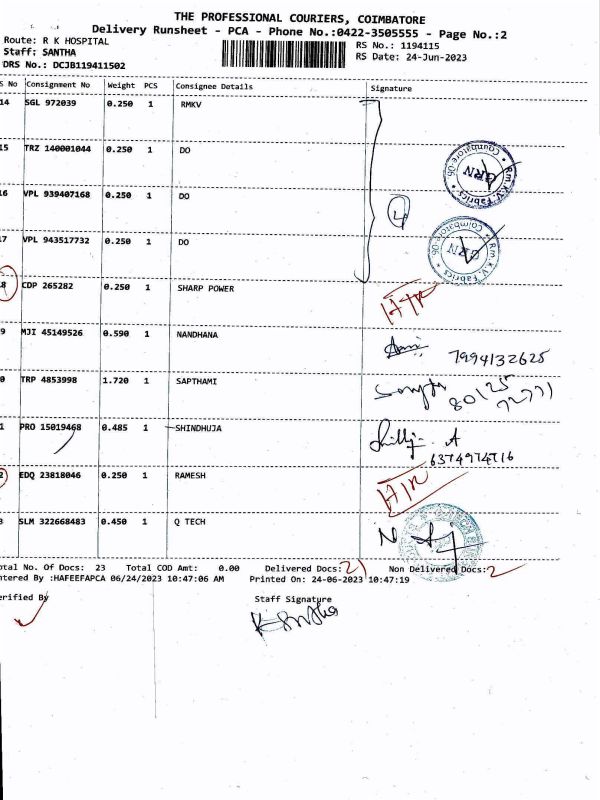 THE PROFESSIONAL COURIERS, COIMBATORE
Delivery Runsheet - PCA - Phone No.:0422-3505555 - Page No.:2
Route: R K HOSPITAL
RS No.: 1194115
Staff: SANTHA
RS Date: 24-Jun-2023
DRS No.: DCJB119411502
S No Consignment No Weight PCS Consignee Details Signature
14 SGL 972039 0.250 1 RMKV
15 TRZ 140001044 0.250 1 DO
Coimbatore-06 GRN R.m.K.V. Fabrics
16 VPL 939407168 0.250 1 DO
4
17 VPL 943517732 0.250 1 DO
Coimbatore-06 GRN R.m.K.V. Fabrics
8 CDP 265282 0.250 1 SHARP POWER
9 MJI 45149526 0.590 1 NANDHANA
7994132625
0 TRP 4853998 1.720 1 SAPTHAMI
80125
72771
1 PRO 15019468 0.485 1 SHINDHUJA
A
6374974716
2 EDQ 23818046 0.250 1 RAMESH
3 SLM 322668483 0.450 1 Q TECH
otal No. Of Docs: 23 Total COD Amt: 0.00 Delivered Docs: 21 Non Delivered Docs: 2
ntered By :HAFEEFAPCA 06/24/2023 10:47:06 AM Printed On: 24-06-2023 10:47:19
erified By Staff Signature
K. Santha